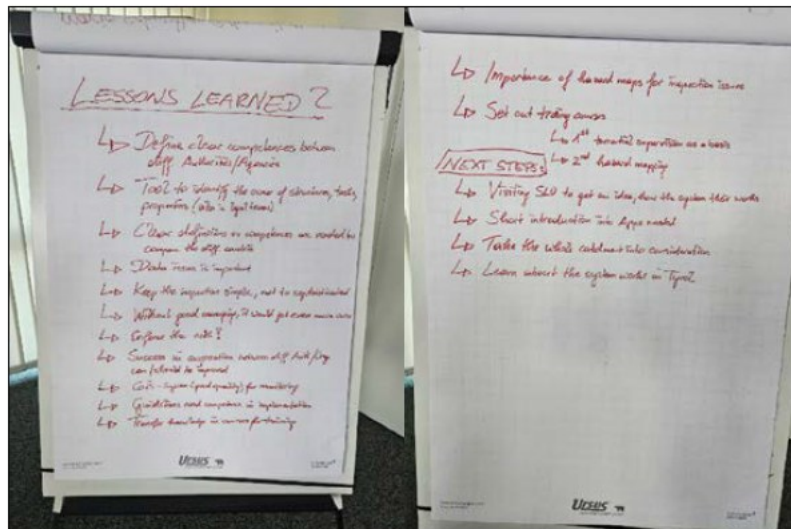 LESSONS LEARNED?
↳ Define clear competences between
diff Authorities/Agencies
↳ Tool to identify the owner of structures, tasks,
properties (also in legal terms)
↳ Clear definitions on competences are needed to
compare the diff.
↳ Data is important
↳ Keep the inspection simple, not to sophisticated
↳ Without good managing, it would get even more
↳ Enforce the
↳ Success in cooperation between diff Auth/Org
can/should be improved
↳ GIS-System (good quality) for monitoring
↳ Guidelines need competence in implementation
↳ Transfer knowledge in courses for training
URSUS
↳ Importance of hazard maps for inspection issues
↳ Set out training courses
↳ 1st torrential supervision as a basis
↳ 2nd hazard mapping
NEXT STEPS:
↳ Visiting SLO to get an idea, how the system there works
↳ Short introduction into Apps needed
↳ Take the whole catchment into consideration
↳ Learn about the system works in Tyrol
URSUS